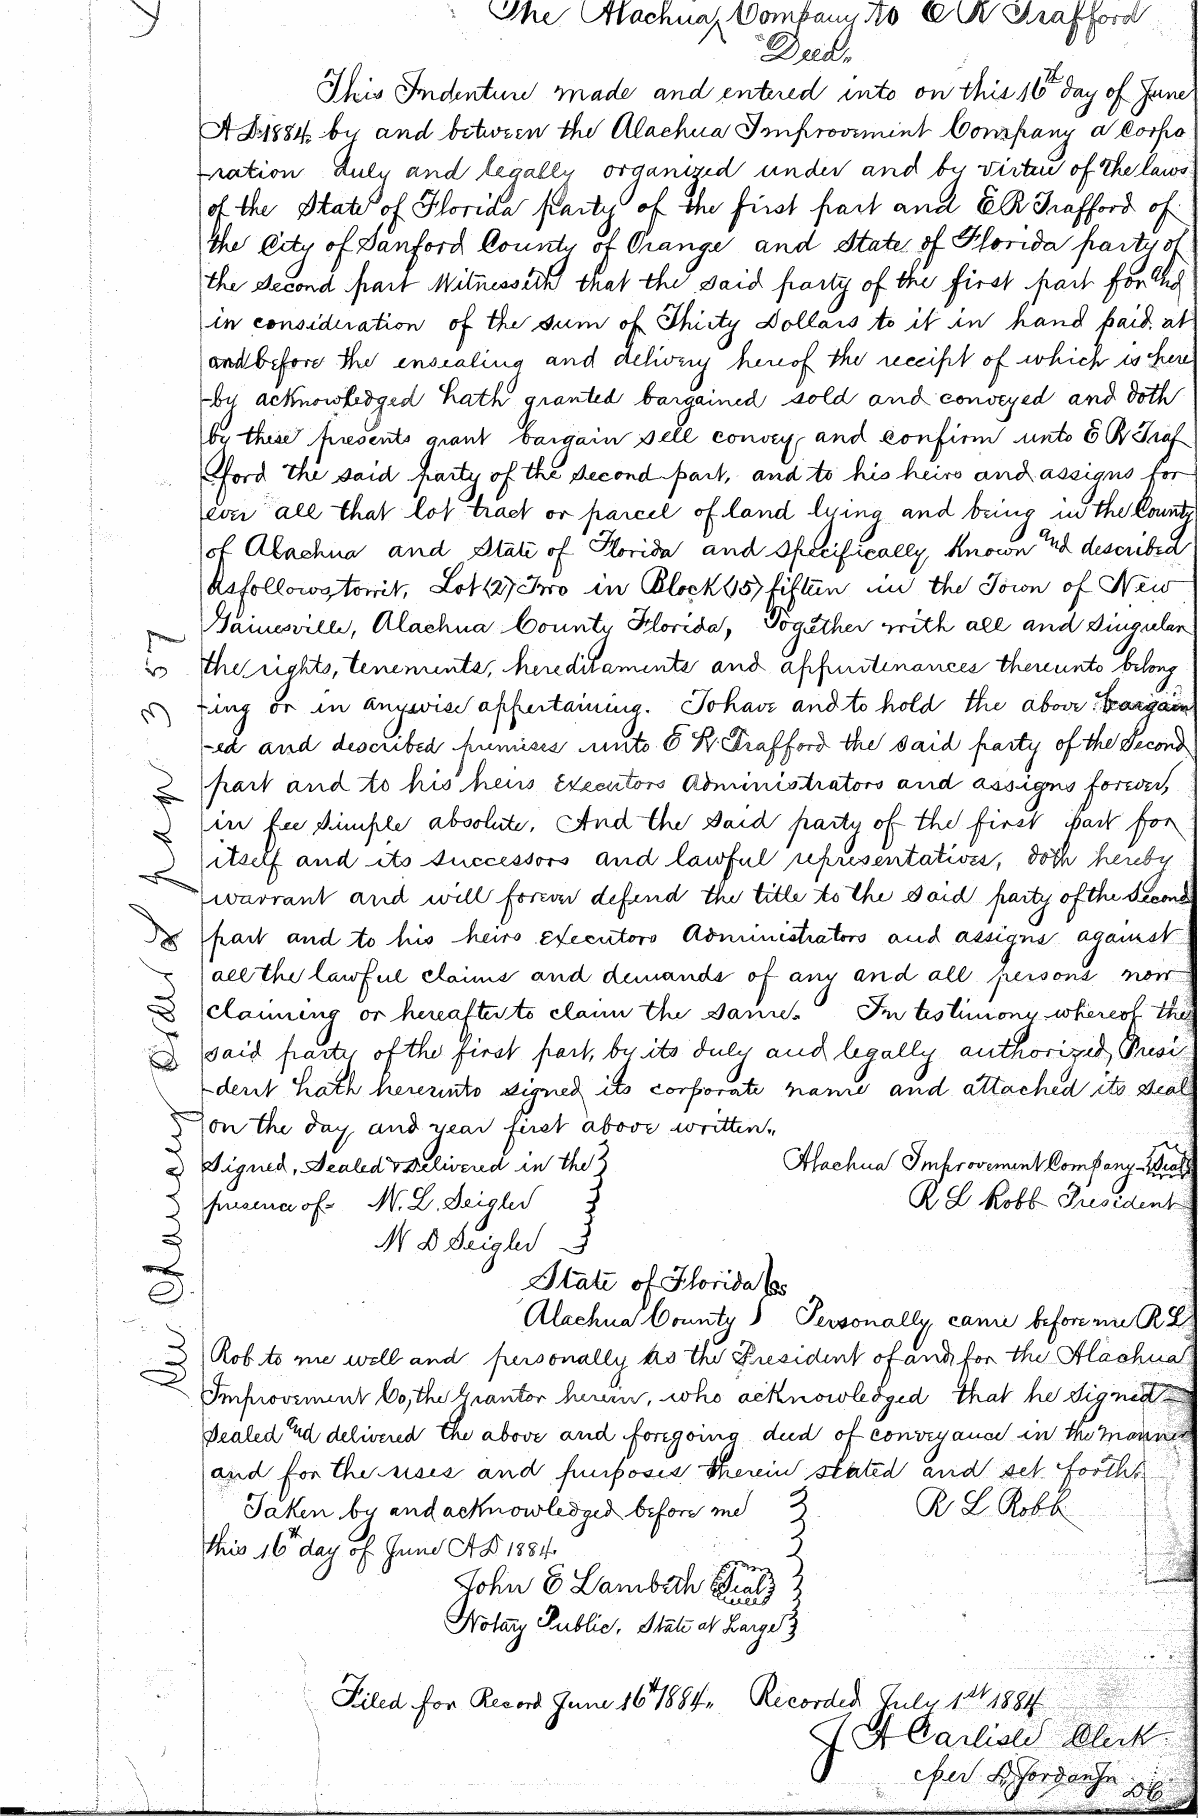 The Alachua Company to E R Trafford
Deed.
This Indenture made and entered into on this 16th day of June
A D 1884, by and between the Alachua Improvement Company a Corpo
-ration duly and legally organized under and by virtue of the laws
of the State of Florida party of the first part and E R Trafford of
the City of Sanford County of Orange and State of Florida party of
the Second part Witnesseth that the said party of the first part for and
in consideration of the sum of Thirty Dollars to it in hand paid at
and before the ensealing and delivery hereof the receipt of which is here
-by acknowledged hath granted bargained sold and conveyed and doth
by these presents grant bargain sell convey and confirm unto E R Traf
fford the said party of the second part, and to his heirs and assigns for
ever all that lot tract or parcel of land lying and being in the County
of Alachua and State of Florida and specifically known and described
as follows, towit, Lot (2) Two in Block (15) fifteen in the Town of New
Gainesville, Alachua County Florida, Together with all and singular
the rights, tenements, hereditaments and appurtenances thereunto belong
-ing or in anywise appertaining. To have and to hold the above bargain
-ed and described premises unto E R Trafford the said party of the Second
part and to his heirs Executors Administrators and assigns forever,
in fee simple absolute. And the said party of the first part for
itself and its successors and lawful representatives, doth hereby
warrant and will forever defend the title to the said party of the Second
part and to his heirs Executors Administrators and assigns against
all the lawful claims and demands of any and all persons now
claiming or hereafter to claim the same. In testimony whereof the
said party of the first part, by its duly and legally authorized Presi
-dent hath hereunto signed its corporate name and attached its seal
on the day and year first above written.
Signed, Sealed & Delivered in the Alachua Improvement Company Seal
presence of N. L. Seigler R L Robb President
N D Seigler
State of Florida ss
Alachua County Personally came before me R L
Rob to me well and personally as the President of and for the Alachua
Improvement Co, the Grantor herein, who acknowledged that he signed
sealed and delivered the above and foregoing deed of conveyance in the manner
and for the uses and purposes therein stated and set forth.
Taken by and acknowledged before me R L Robb
this 16th day of June A D 1884.
John E Lambeth Seal
Notary Public, State at Large
Filed for Record June 16th 1884. Recorded July 1st 1884
J A Carlisle Clerk
per Jordan Jr DC
page 357